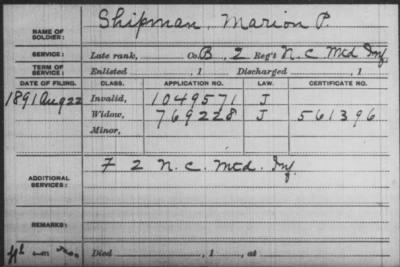 NAME OF SOLDIER: Shipman, Marion P.
SERVICE: Late rank, Co. B, 2 Reg't N. C. Mtd Inf
TERM OF SERVICE: Enlisted , 1 Discharged , 1
DATE OF FILING. CLASS. APPLICATION NO. LAW. CERTIFICATE NO.
1891 Aug 22 Invalid, 1049571 J
Widow, 769228 J 561396
Minor,
ADDITIONAL SERVICES: F 2 N. C. Mtd. Inf.
REMARKS:
Died , 1 , at